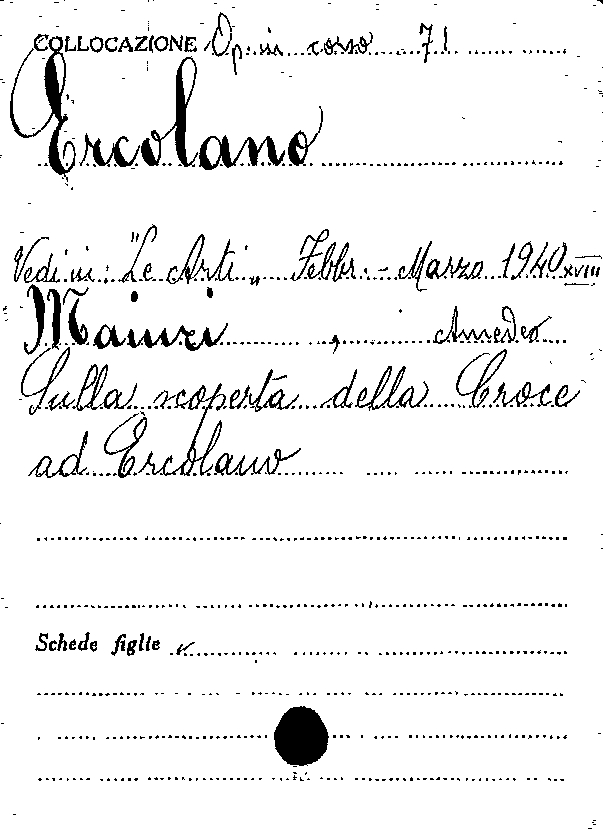 COLLOCAZIONE Op. in corso 71
Ercolano
Vedi in: "Le Arti„ Febbr. - Marzo 1940 XVIII
Maiuri, Amedeo
Sulla scoperta della Croce
ad Ercolano
Schede figlie